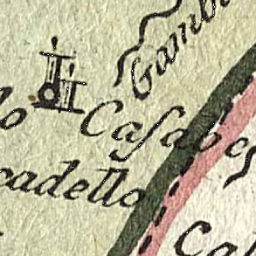 Gamb
lo
Casabes
cadello
Cal